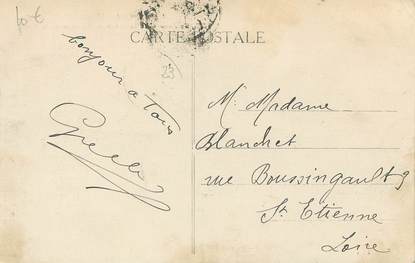 10 €
CARTE POSTALE
23
bonjour a tous
M. Madame
Blanchet
rue Boussingault 9
St Etienne
Loire